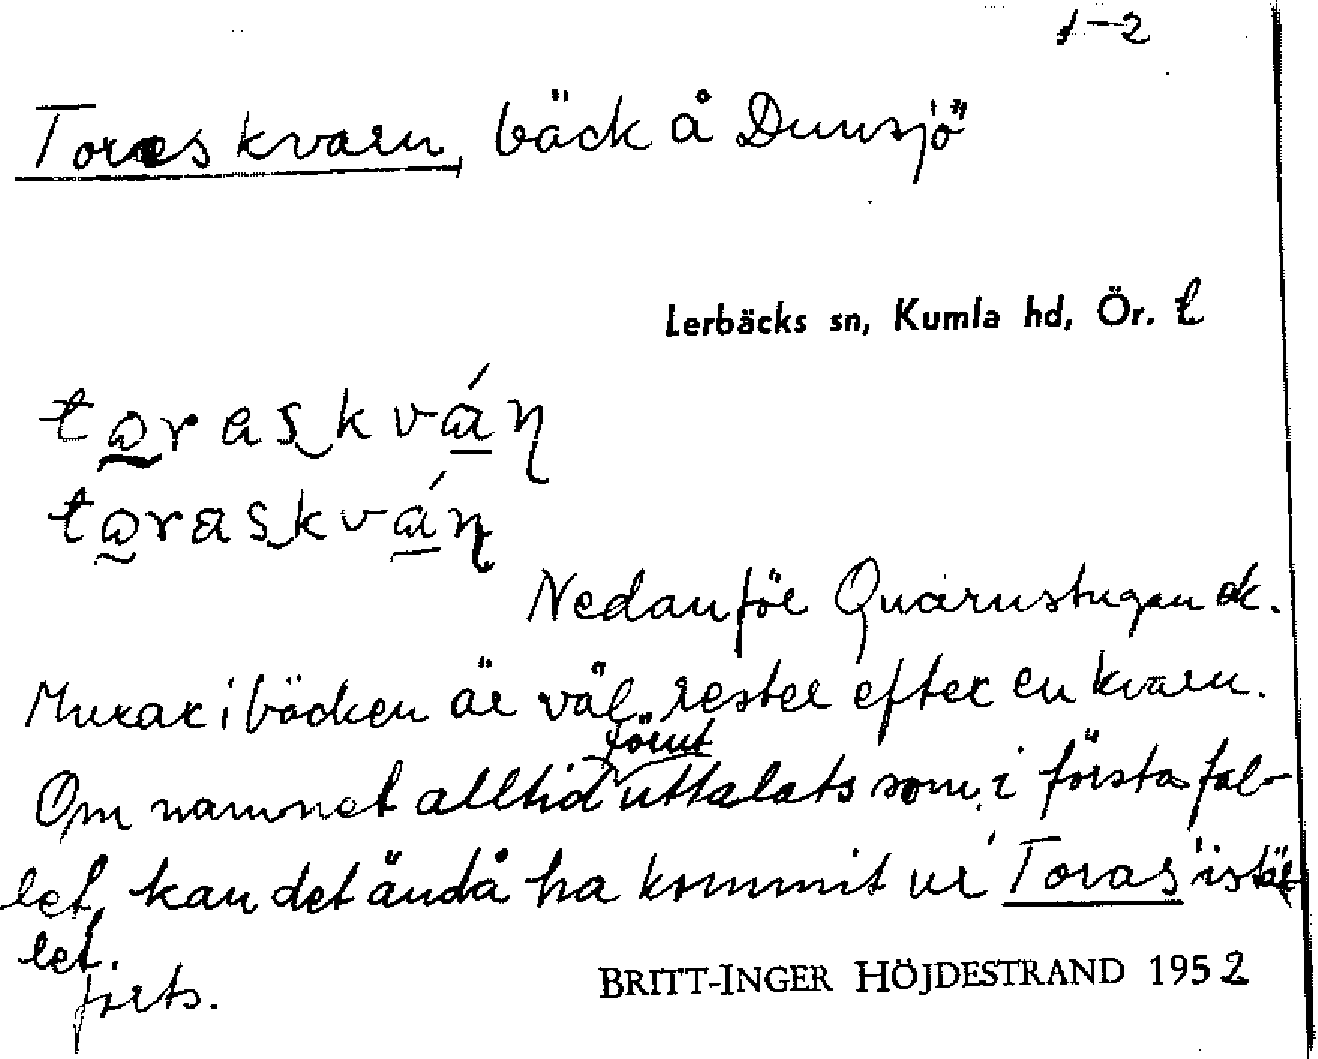 1-2
Toras kvarn, bäck å Dunsjö
Lerbäcks sn, Kumla hd, Ör. l
Nedanför Quarnstugan ek.
Murar i bäcken är väl rester efter en kvarn.
förut
Om namnet alltid uttalats som i första fal-
let, kan det ändå ha kommit ur 'Toras' istäl-
let.
forts.
BRITT-INGER HÖJDESTRAND 1952